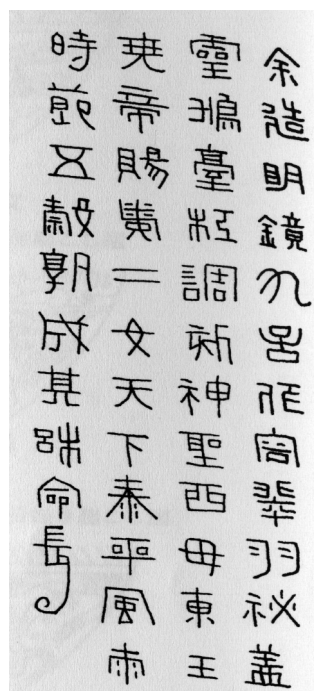 余造明鏡九作容翠羽祕盖
靈鵝臺杞調刻神聖西母東王
堯帝賜舜二女天下泰平風雨
時節五穀孰成其師命長